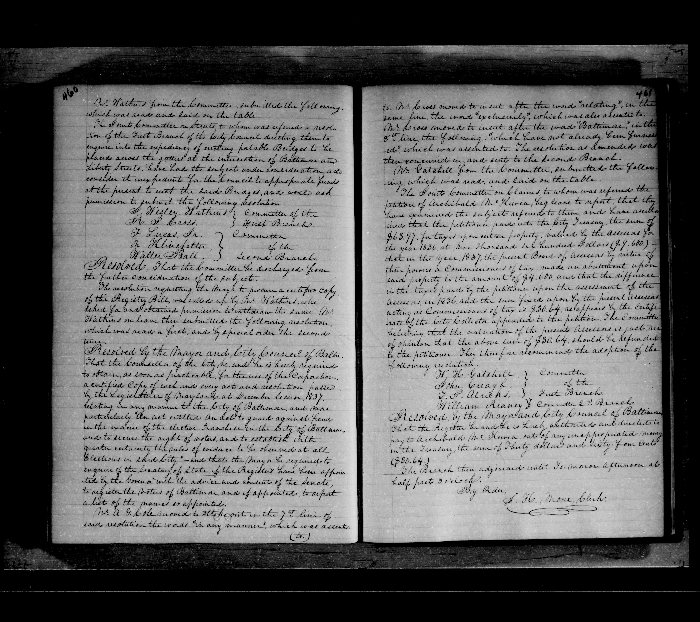 460
Mr. Watkins from the Committee, submitted the following,
which was read and laid on the table.
The Joint Committee on Streets to whom was referred a resolu-
tion of the First Branch of the City Council directing them to
enquire into the expediency of erecting palable Bridges to be
placed across the gutters at the intersection of Baltimore and
Liberty Streets, have had the subject under consideration, and
consider it inexpedient for the Council to appropriate funds
at the present to erect the said Bridges, and would ask
permission to submit the following resolution
T. Wesley Watkins } Committee of the
R. S. Cross } First Branch
F. Lucas, Jr. } Committee
of the
Walter Ball } Second Branch
Resolved, That the Committee be discharged from
the further consideration of the subject.
The resolution requesting the Mayor to procure a certified copy
of the Registry Bill, was called up by Mr. Watkins, who
asked for and obtained permission to withdraw the same. Mr.
Watkins on leave then submitted the following resolution,
which was read a first, and by special order the second
time.
Resolved by the Mayor and City Council of Balto.
That the Counsellor of the City be, and he is hereby required
to obtain, as soon as practicable, for the use of the Corporation,
a certified Copy of each and every act and resolution passed
by the Legislature of Maryland, at December Session, 1837,
relating in any manner to the City of Baltimore, and more
particularly the act entitled an act to guard against frauds
in the exercise of the elective franchise in the City of Baltimore,
and to secure the right of voters, and to establish with
greater certainty the rules of evidence to be observed at all
Elections in said City"—and that the Mayor be requested to
enquire of the Secretary of State, if the Registers have been appoin-
ted by the Governor with the advice and consent of the Senate,
to register the Voters of Baltimore, and if appointed, to report
a list of the names so appointed.
Mr. A. G. Cole moved to strike out in the 7th line of
said resolution the words "in any manner", which was assent
(ed.)
461
to. Mr. Cross moved to insert after the word "relating", in the
same line, the word "exclusively", which was also assented to.
Mr. Cross moved to insert after the word "Baltimore," in the
8th line the following "which have not already been furnish-
ed" which was assented to. The resolution as amended was
then concurred in, and sent to the Second Branch.
Mr. Gatchell from the Committee, submitted the follow-
ing which was read, and laid on the table.
The Joint Committee on Claims to whom was referred the
petition of Archibald McKenna, beg leave to report, that they
have examined the subject referred to them and have ascertained
that the petitioner paid into the City Treasury, the sum of
$63.77, for taxes upon certain property, valued by the Assessors for
the year 1836
that in the year, 1837, the present Board of Assessors by virtue of
their powers as Commissioners of tax, made an abatement upon
said property to the amount of
in the taxes paid by the petitioner upon the assessment of the
Assessors in 1836, and the sum fixed upon by the present Assessors
acting as Commissioners of tax is $30.64, as appears by the certifi-
cate of the City Collector appended to the petition. The Committee
believing that the valuation of the present Assessors is just, are
of opinion that the above sum of $30.64, should be refunded
to the petitioner. They therefore recommend the adoption of the
following resolution.
W. H. Gatchell } Committee
John Cragh } of the
First Branch
William Reaney } Committee 2d Branch
Resolved by the Mayor and City Council of Baltimore
That the Register be and he is hereby authorized and directed to
pay to Archibald McKenna out of any unappropriated money
in the Treasury, the sum of Thirty dollars and sixty four cents
($30.64.)
The Branch then adjourned until To-morrow afternoon at
half past 3 o'clock.
By Order
Clerk.